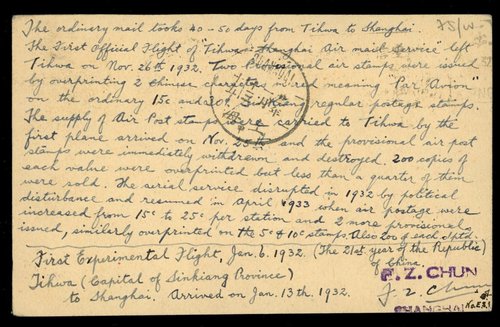 The ordinary mail tooks 40 - 50 days from Tihwa to Shanghai.
The First Official Flight of "Tihwa - Shanghai Air mail Service" left
Tihwa on Nov. 26th 1932. Two Provisional air stamps were issued
by overprinting 2 Chinese characters in red meaning "Par Avion"
on the ordinary 15c and 30c Sinkiang regular postage stamps.
The supply of Air Post stamps were carried to Tihwa by the
first plane arrived on Nov. 25th and the provisional air post
stamps were immediately withdrawn and destroyed. 200 copies of
each value were overprinted but less than a quarter of them
were sold. The serial service disrupted in 1932 by political
disturbance and resumed in April 1933 when air postage were
increased from 15c to 25c per station and 2 more provisional
issued, similarly overprinted on the 5c & 10c stamps. Also 200 of each
First Experimental Flight, Jan. 6. 1932. (The 21st year of the Republic)
of China.
Tihwa (Capital of Sinkiang Province)
to Shanghai. Arrived on Jan. 13th. 1932.
F. Z. CHUN
F. Z. Chun
SHANGHAI